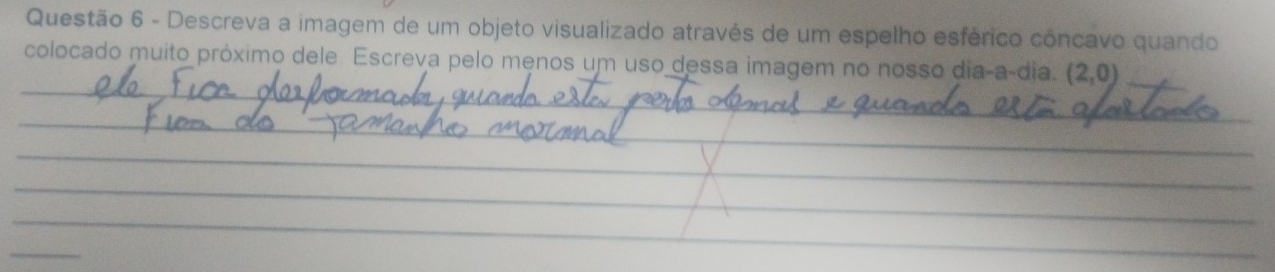 Questão 6 - Descreva a imagem de um objeto visualizado através de um espelho esférico côncavo quando
colocado muito próximo dele. Escreva pelo menos um uso dessa imagem no nosso dia-a-dia. (2,0)
ele Fica desformada, quando esta perto demais e quando está afastado
Fica do Tamanho moranal